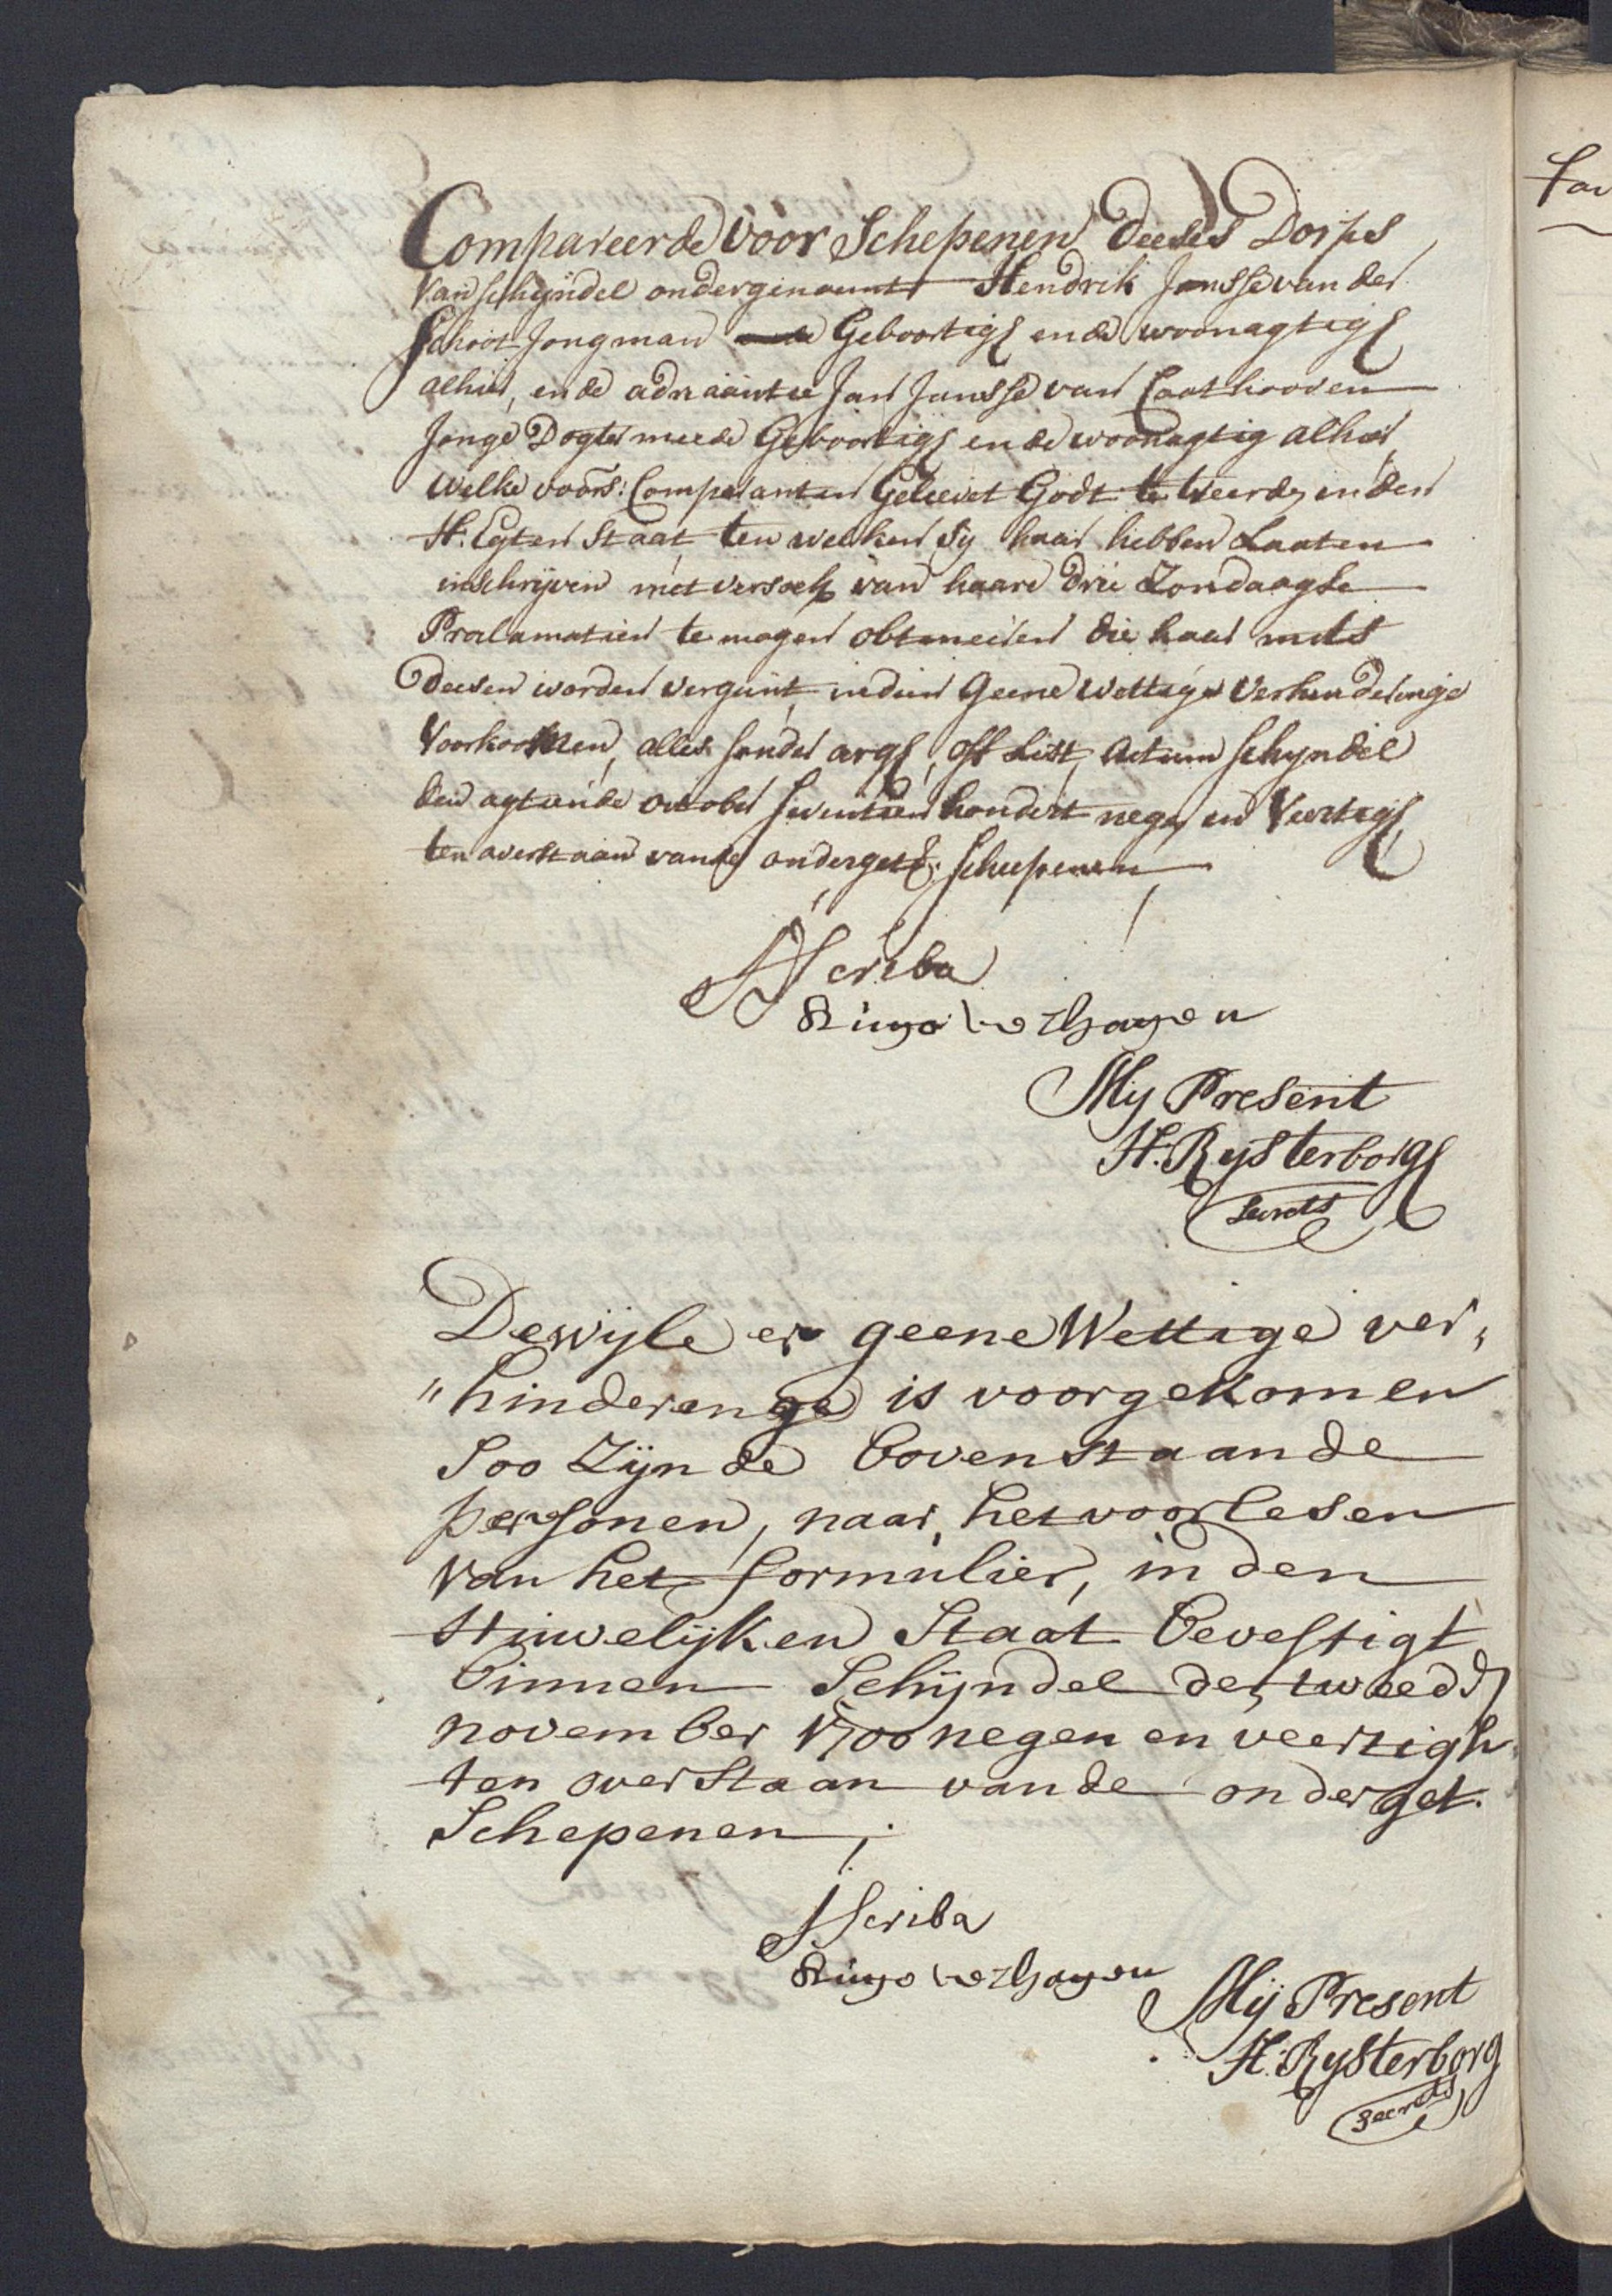 Compareerde voor Schepenen deeses Dorps
van schijndel ondergenoemt Hendrik Jansse van der
Schoot Jongman Geboortigh ende woonagtigh
alhier, ende adriaantie Jan Jansse van Casthooven
Jonge Dogter meede Geboortigh ende woonagtig alhier,
welke voors: Comparanten Gelieert Godt te weerde, in den
H. Egten Staat, ten welken sij haar hebben Laaten
inschrijven met versoek van haare drie Zondaagse
Proclamatien te mogen obtineeren die haar mits
deesen worden vergunt, indien Geene Wettige verhinderinge
voorkoomen, alles sonder argh, off List, Actum schijndel
den agtiende october seventien hondert negen en Veertigh
ten overstaan vande onderget: scheepenen
JScriba
Ruijs Verhagen
Mij Present
H. Rijsterborgh
Secrets
Dewijle er geene Wettige ver„
„hinderenge is voorgekomen
Soo Zijn de bovenstaande
persoonen, naar het voorlesen
van het formulier, in den
Huwelijken Staat bevestigt
binnen Schijndel de, tweede
november 1700 negen en veertigh
ten overstaan vande onderget.
Schepenen,
JScriba
Verhagen
Mij Present
H: Rijsterborg
Secrets